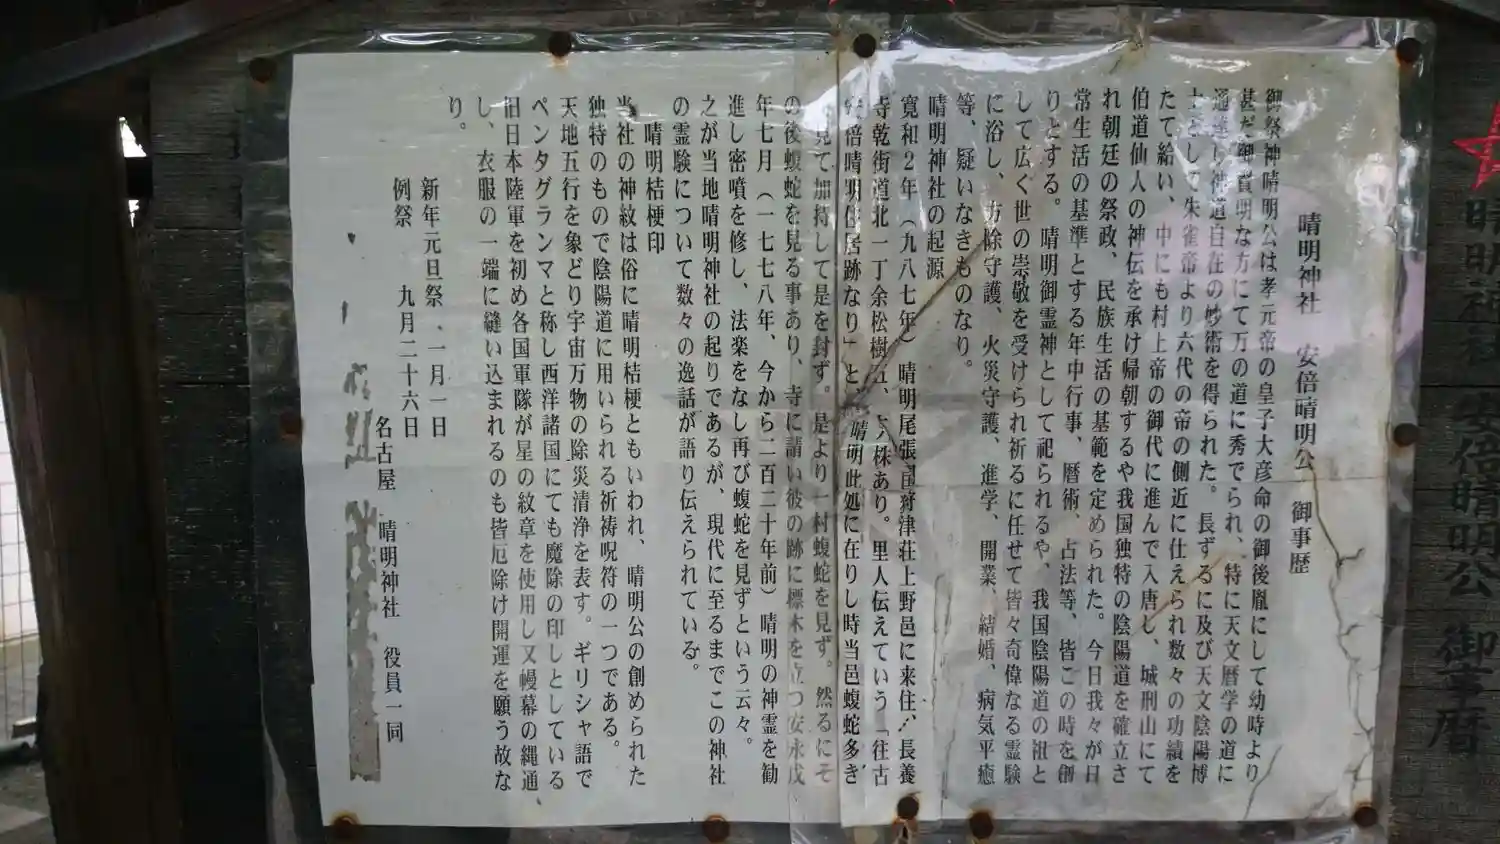 晴明神社 安倍晴明公 御事歴
御祭神晴明公は孝元帝の皇子大彦命の御後胤にして幼時より
甚だ御賢明な方にて万の道に秀でられ、特に天文暦学の道に
通達し神道自在の妙術を得られた。長ずるに及び天文陰陽博
士として朱雀帝より六代の帝の側近に仕えられ数々の功績を
たて給い、中にも村上帝の御代に進んで入唐し、城刑山にて
伯道仙人の神伝を承け帰朝するや我国独特の陰陽道を確立さ
れ朝廷の祭政、民族生活の基範を定められた。今日我々が日
常生活の基準とする年中行事、暦術、占法等、皆この時を創
りとする。晴明御霊神として祀られるや、我国陰陽道の祖と
して広く世の崇敬を受けられ祈るに任せて皆々奇偉なる霊験
に浴し、方除守護、火災守護、進学、開業、結婚、病気平癒
等、疑いなきものなり。
晴明神社の起源
寛和2年(九八七年)晴明尾張国狩津荘上野邑に来住、「長養
寺乾街道北一丁余松樹五、六株あり。里人伝えていう「往古
安倍晴明住居跡なり」と「晴明此処に在りし時当邑蝮蛇多き
を見て加持して是を封ず。是より一村蝮蛇を見ず。然るにそ
の後蝮蛇を見る事あり、寺に請い彼の跡に標木を立つ安永戊
年七月(一七七八年、今から二百二十年前)晴明の神霊を勧
進し密噴を修し、法楽をなし再び蝮蛇を見ずという云々。
之が当地晴明神社の起りであるが、現代に至るまでこの神社
の霊験について数々の逸話が語り伝えられている。
晴明桔梗印
当社の神紋は俗に晴明桔梗ともいわれ、晴明公の創められた
独特のもので陰陽道に用いられる祈祷呪符の一つである。
天地五行を象どり宇宙万物の除災清浄を表す。ギリシャ語で
ペンタグランマと称し西洋諸国にても魔除の印しとしている
旧日本陸軍を初め各国軍隊が星の紋章を使用し又幔幕の縄通、
し、衣服の一端に縫い込まれるのも皆厄除け開運を願う故な
り。
新年元旦祭、一月一日
例祭 九月二十六日
名古屋 晴明神社 役員一同
晴明神社 安倍晴明公 御事暦